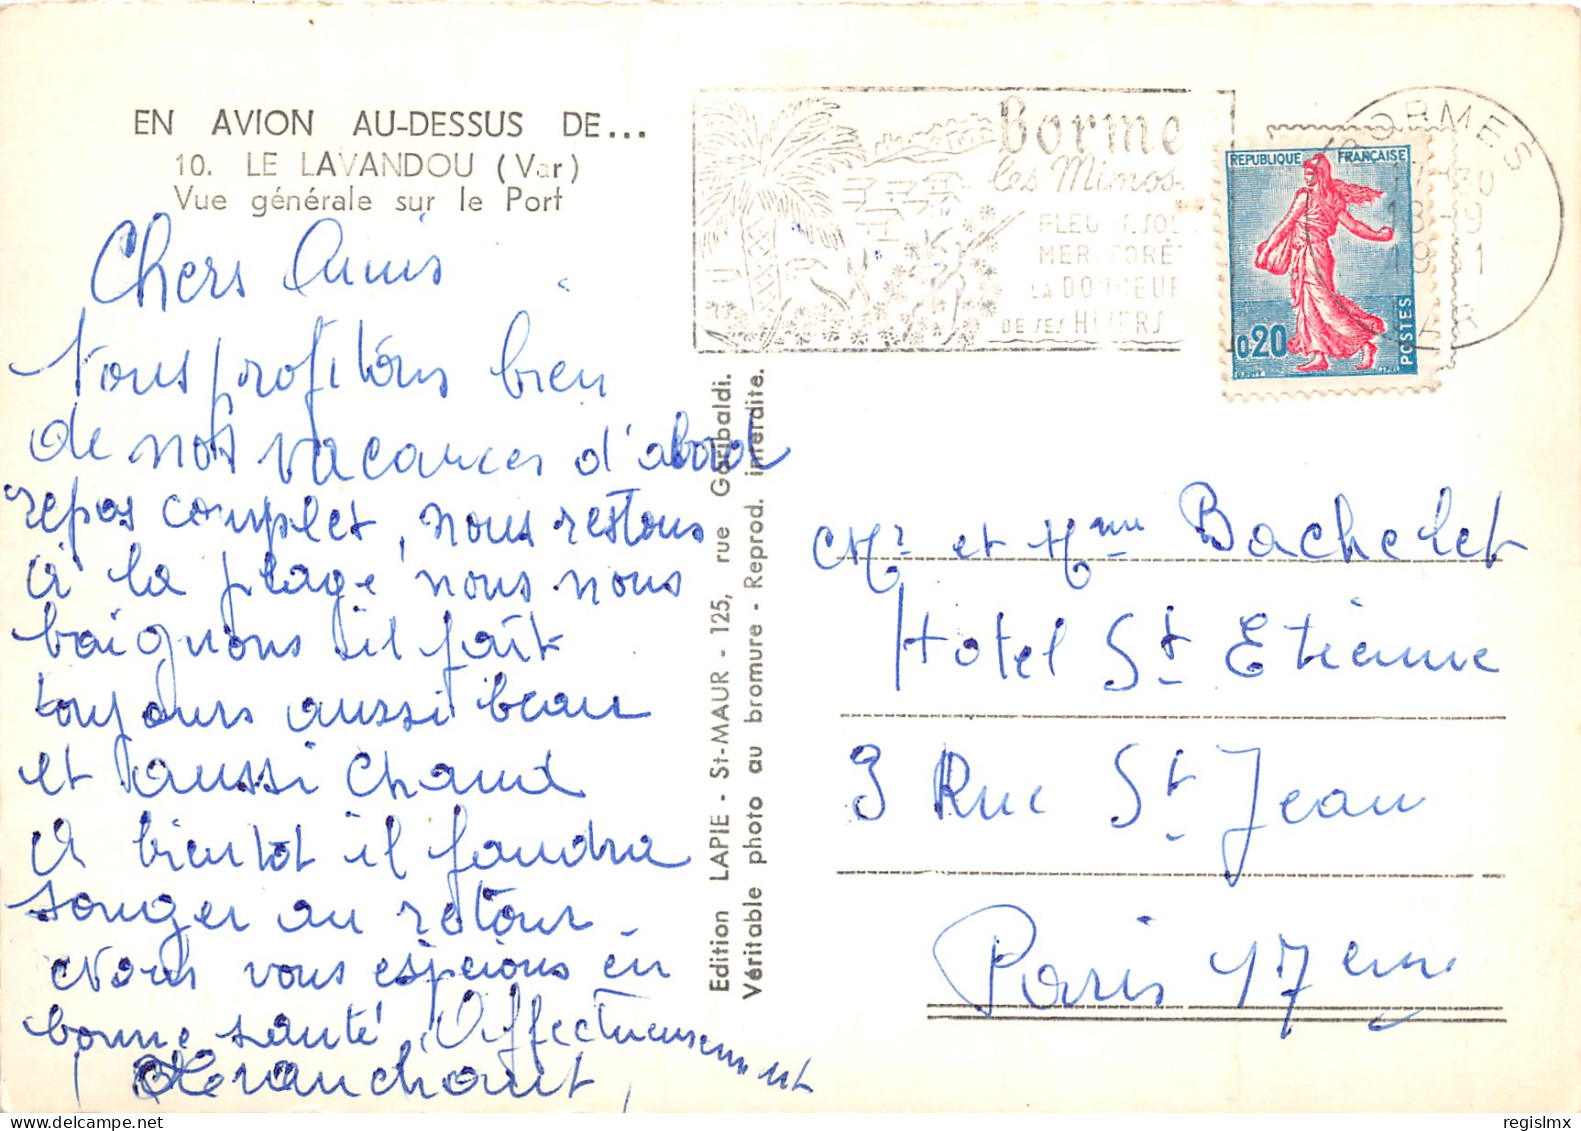 EN AVION AU-DESSUS DE...
10. LE LAVANDOU (Var)
Vue générale sur le Port
Chers Amis
Nous profitons bien
de nos vacances d'abord
repos complet, nous restons
à la plage nous nous
baignons il fait
toujours aussi beau
et aussi chaud
A bientôt il faudra
songer au retour
Nous vous espérons en
bonne santé. Affectueusement
Edition LAPIE - St-MAUR - 125, rue Garibaldi.
Véritable photo au bromure - Reprod. interdite.
Borme
les Mimos
FLEU SOL
MER FORÊT
LA DOUCEUR
DE SES HIVERS
REPUBLIQUE FRANÇAISE
0,20
POSTES
BORMES
17H30
18-9
19 1
VAR
Mr et Mme Bachelet
Hotel St Etienne
3 Rue St Jean
Paris 17eme
regislmx